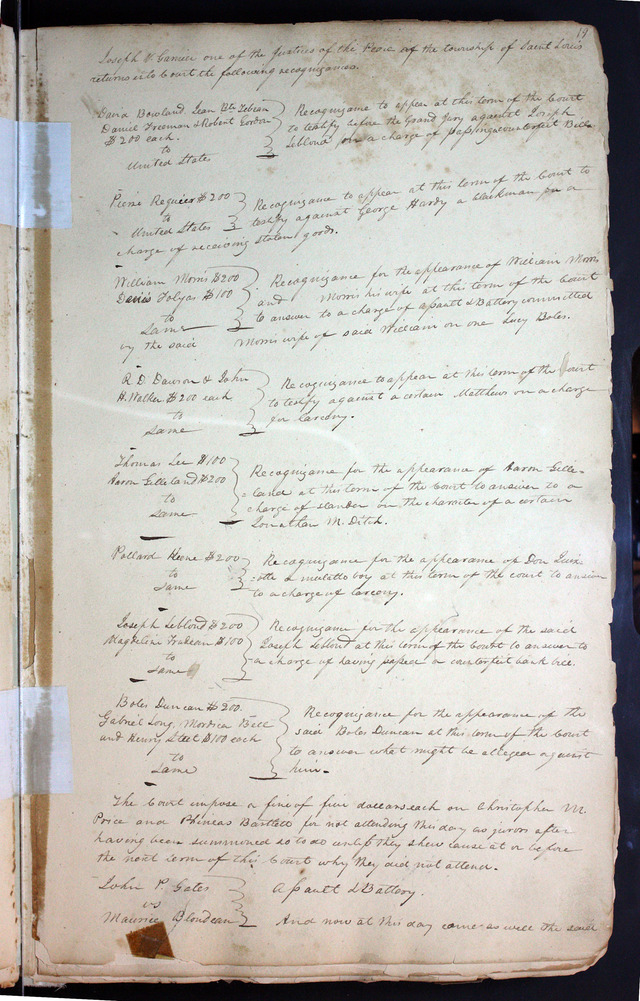 19
Joseph V. Garnier one of the Justices of the Peace of the township of Saint Louis
returns into Court the following recognizances.
David Bowland Jean Bte Lebeau
Daniel Freeman & Robert Gordon
$200 each.
to
United States
Recognizame to appear at this term of the Court
to testify before the Grand Jury against Joseph
Leblond on a charge of passing counterfeit Bills
Pierre Reguier $200
to
United States
Recognizame to appear at this term of the Court to
testify against George Hardy a blackman on a
charge of receiving stolen goods.
William Morris $200
Davis Folyas $100
to
Same
Recognizame for the appearance of William Morris
and Morris his wife at this term of the Court
to answer to a charge of assault & Battery committed
by the said Morris wife of said William on one Lucy Boles.
R. D. Dawson & John
H. Walker $200 each
to
Same
Recognizame to appear at this term of the Court
to testify against a certain Matthews on a charge
for larceny.
Thomas Lee $100
Aaron Gilleland $200
to
Same
Recognizame for the appearance of Aaron Gille-
=land at this term of the Court to answer to a
charge of slander on the character of a certain
Jonathan M. Ditch.
Pollard Keene $200
to
Same
Recognizame for the appearance of Don Quix
=otte a mulatto boy at this term of the court to answer
to a charge of larceny.
Joseph Leblond $200
Magdeline Trudeau $100
to
Same
Recognizame for the appearance of the said
Joseph Leblond at this term of the Court to answer to
a charge of having passed a counterfeit bank bill.
Boles Duncan $200.
Gabriel Long, Mordica Bell
and Henry Sleet $100 each
to
Same
Recognizame for the appearance of the
said Boles Duncan at this term of the Court
to answer what might be alleged against
him-
The Court impose a fine of five dollars each on Christopher M.
Price and Phineas Bartlett for not attending this day as jurors after
having been summoned so to do unless they shew cause at or before
the next term of this Court why they did not attend.
John P. Gates
vs
Maurice Blondeau
Assault & Battery.
And now at this day comes as well the said